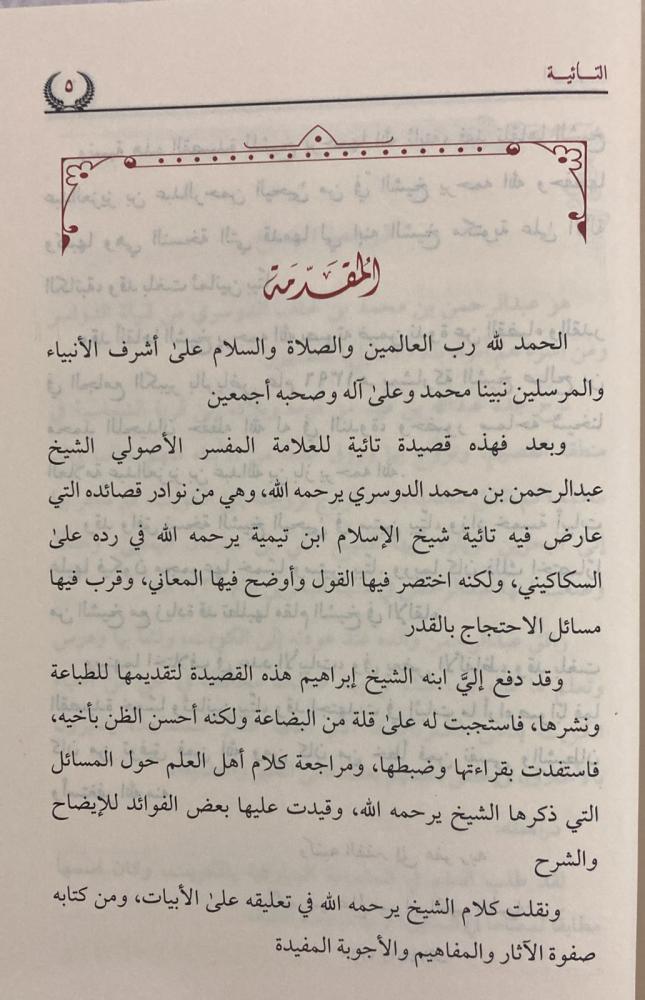 التائية
٥
المقدمة
الحمد لله رب العالمين والصلاة والسلام علىٰ أشرف الأنبياء
والمرسلين نبينا محمد وعلىٰ آله وصحبه أجمعين
وبعد فهذه قصيدة تائية للعلامة المفسر الأصولي الشيخ
عبدالرحمن بن محمد الدوسري يرحمه الله، وهي من نوادر قصائده التي
عارض فيه تائية شيخ الإسلام ابن تيمية يرحمه الله في رده علىٰ
السكاكيني، ولكنه اختصر فيها القول وأوضح فيها المعاني، وقرب فيها
مسائل الاحتجاج بالقدر
وقد دفع إليَّ ابنه الشيخ إبراهيم هذه القصيدة لتقديمها للطباعة
ونشرها، فاستجبت له علىٰ قلة من البضاعة ولكنه أحسن الظن بأخيه،
فاستفدت بقراءتها وضبطها، ومراجعة كلام أهل العلم حول المسائل
التي ذكرها الشيخ يرحمه الله، وقيدت عليها بعض الفوائد للإيضاح
والشرح
ونقلت كلام الشيخ يرحمه الله في تعليقه علىٰ الأبيات، ومن كتابه
صفوة الآثار والمفاهيم والأجوبة المفيدة